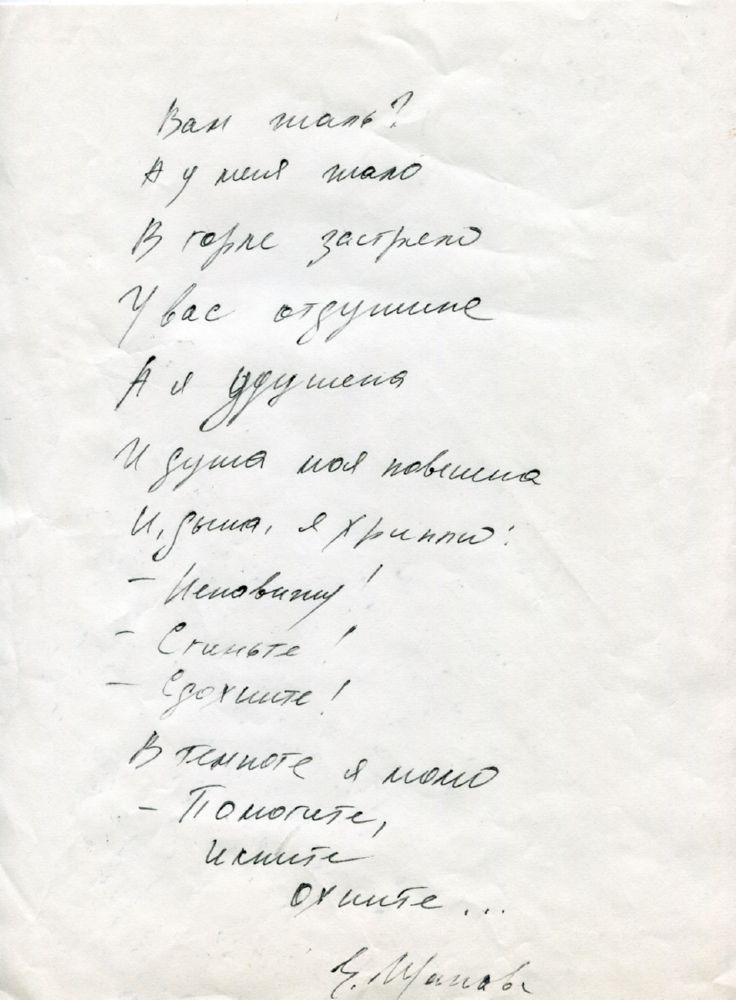 Вам жаль?
А у меня жало
В горле застряло
У вас отдушине
А я удушена
И душа моя повешена
И, дыша, я хриплю:
– Ненавижу!
– Сгиньте!
– Сдохните!
В темноте я молю
– Помогите,
Икните
Охните...
Щапова